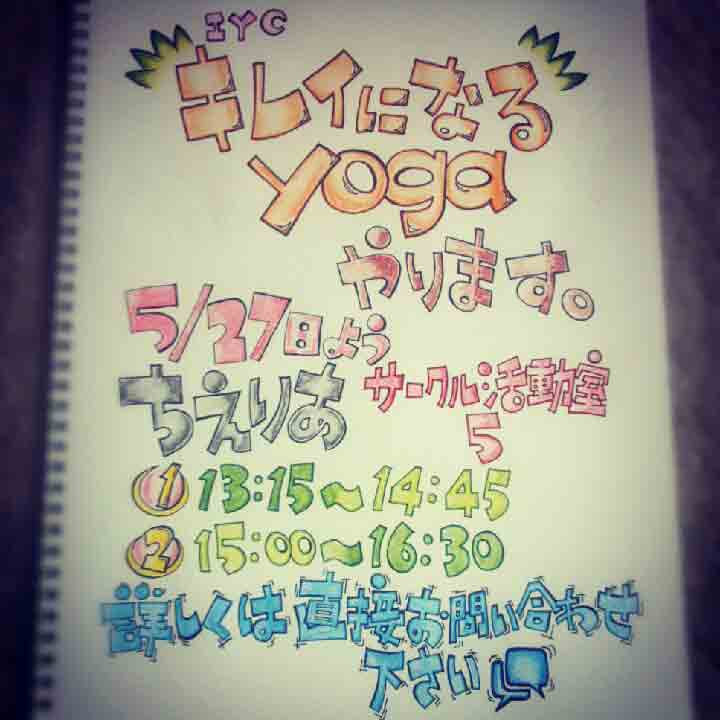 IYC
キレイになる
yoga
やります。
5/27日よう
ちえりあ サークル活動室
5
1 13:15〜14:45
2 15:00〜16:30
詳しくは直接お問い合わせ
下さい